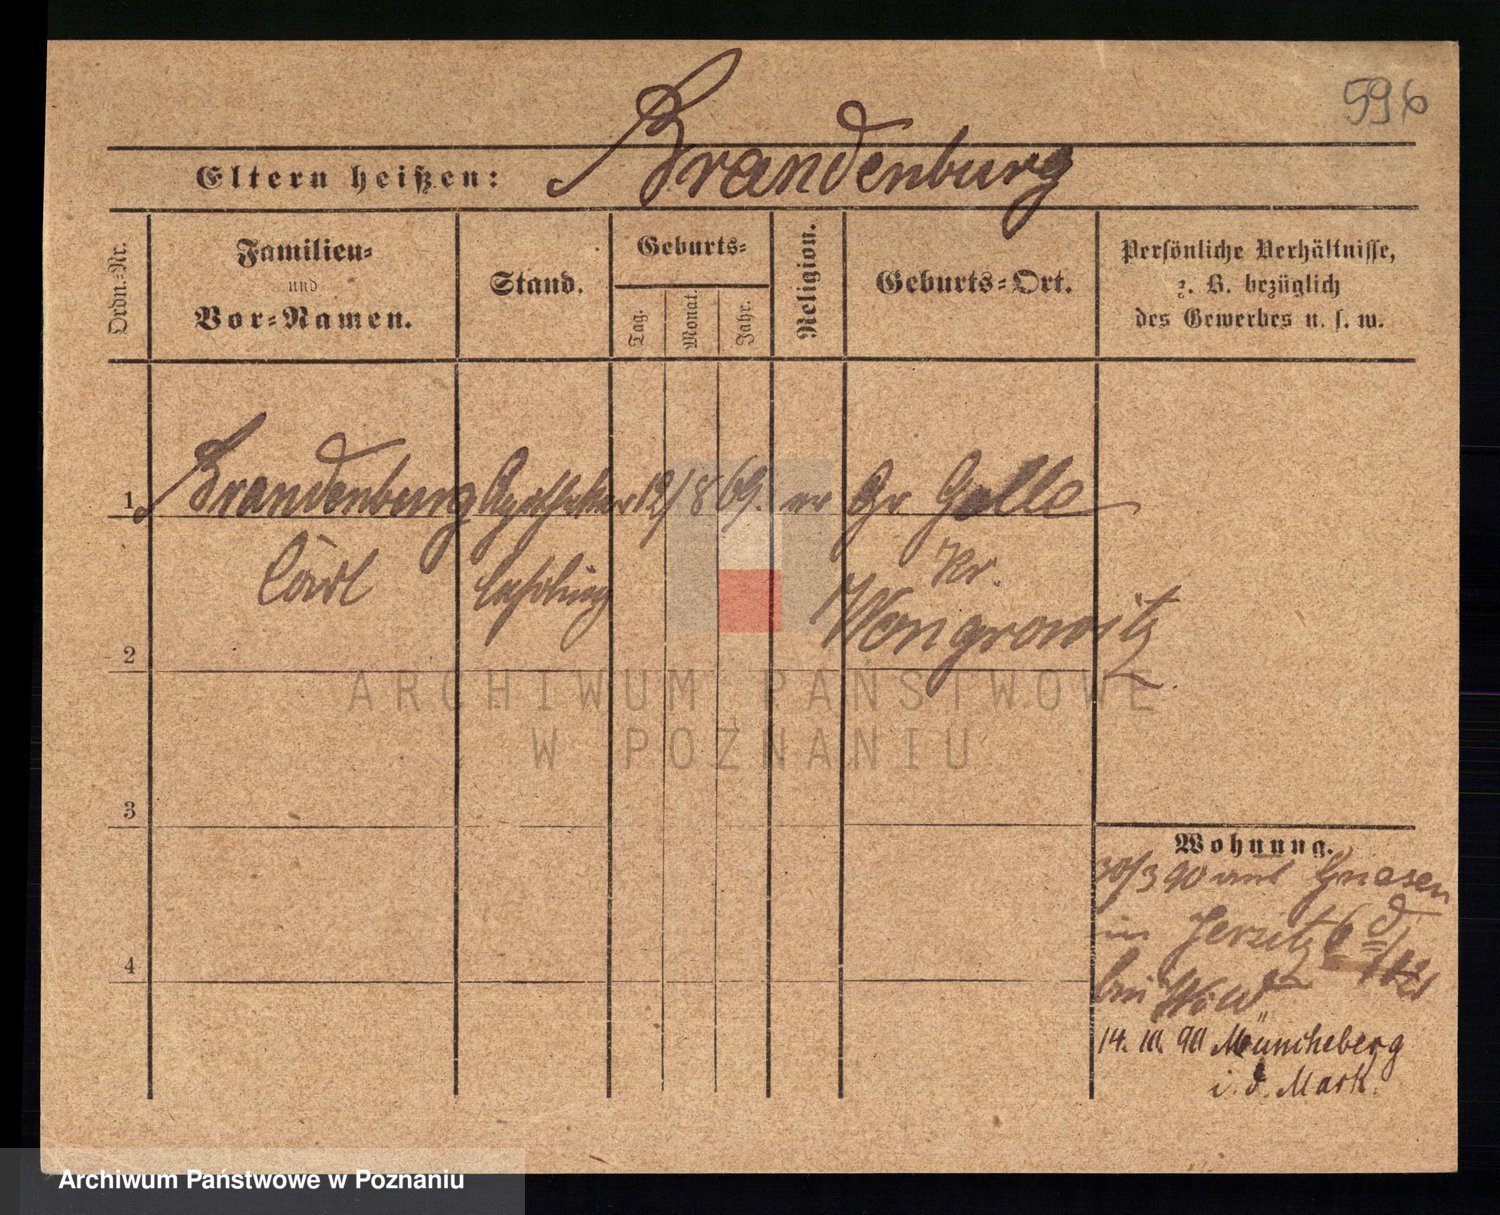 596
Eltern heißen: Brandenburg
Ordn.-Nr.
Familien-
und
Vor-Namen.
Stand.
Geburts-
Tag.
Monat.
Jahr.
Religion.
Geburts-Ort.
Persönliche Verhältnisse,
z. B. bezüglich
des Gewerbes u. s. w.
1 Brandenburg Apotheker 12/8 69. Gr Golle
Kr.
Wongrowitz
2
3
4
Wohnung.
30/3 90 aus Gnesen
in Jersitz 6
bei
14. 10. 90 Müncheberg
i. d. Mark.
ARCHIWUM PAŃSTWOWE
W POZNANIU
Archiwum Państwowe w Poznaniu